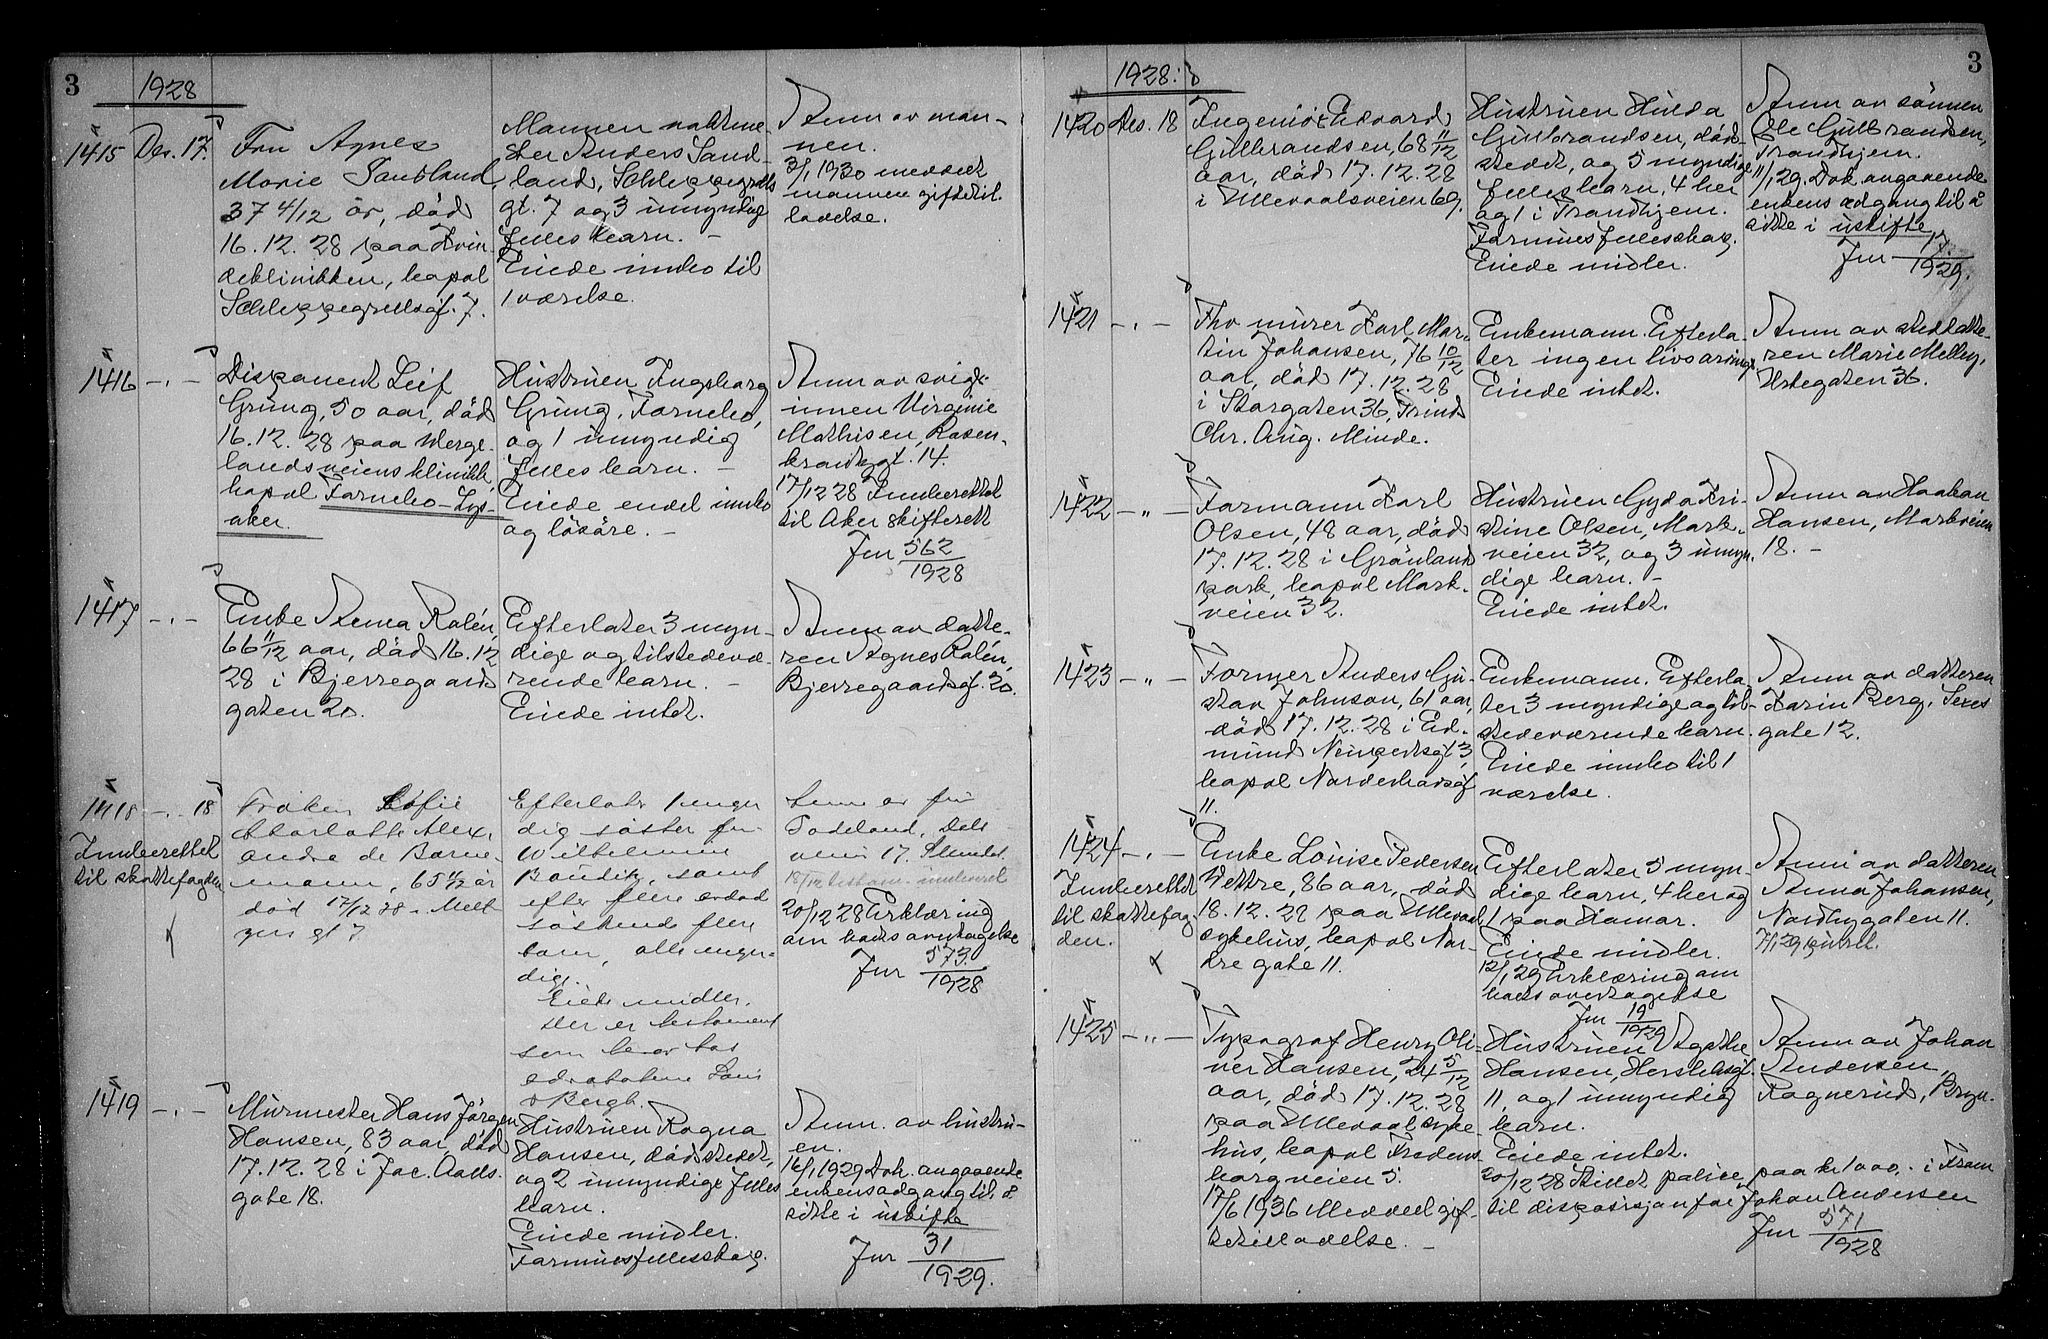 3
1928
1415 Des. 17.
Fru Agnes
Marie Sandland,
37 4/12 år, död
16.12.28 paa Kvin
deklinikken, bopæl
Schleppegrellsgt. 7.
Mannen vaktme-
ster Anders Sand-
land, Schleppegrells
gt. 7 og 3 umyndige
fellesbarn. -
Eiede innbo til
1 værelse.
Anm av man-
nen.
3/1 1930 meddelt
mannen giftetil
ladelse.
1416 -.-
Disponent Leif
Grung, 50 aar, död
16.12.28 paa Werge-
landsveiens klinikk,
bopæl Fornebo-Lys-
aker.
Hustruen Ingeborg
Grung, Fornebo,
og 1 umyndig
fellesbarn. -
Eiede endel innbo
og lösöre. -
Anm av svigr
innen Virginie
Mathisen, Rosen-
krantzgt. 14.
17/12 28 Innberettet
til Aker skifterett
Jnr 562/1928
1417 -.-
Enke Anna Rolén,
66 11/12 aar, död 16.12
28 i Bjerregaards
gaten 20.
Efterlater 3 myn-
dige og tilstedevæ-
rende barn. -
Eiede intet.
Anm av datte-
ren Agnes Rolén,
Bjerregaardsgt. 20.
1418 -.- 18
Innberettet
til skattefogden
Fröken Sofie
Charlotte Alex-
andra de Borne-
mann, 65 år
död 17/12 28 Melt
zers gt 7
Efterlater 1 myn
dig söster fru
Wilhelmine
, samt
efter flere avdöd
söskende flere
barn, alle myn-
dig.
Eiede midler.
Der er testament
som beror hos
advokatene
& Bergh.
Anm av fru
Dels
veien 17.
18/12 testam innlevert
20/12 28 Erklæring
om boets overtagelse
Jnr 573/1928
1419 -.-
Murmester Hans Jörgen
Hansen, 83 aar, död
17.12.28 i Jac. Aalls
gate 18.
Hustruen Ragna
Hansen, dödstedet,
og 2 umyndige felles
barn.
Eiede midler.
Formuesfellesskap.
Anm. av hustru-
en.
16/1 1929 Dok. angaaende
enkens adgang til å
sitte i uskifte
Jnr 31/1929.
3
1928:
1420 Des. 18
Ingeniör Edvard
Gulbrandsen, 68 11/12
aar, död 17.12.28
i Ullevaalsveien 69.
Hustruen Hulda
Gulbrandsen, död-
stedet, og 5 myndige
fellesbarn, 4 her
og 1 i Trondhjem.
Formuesfellesskap.
Eiede midler.
Anm av sönnen
Ole Gulbrandsen,
Trondhjem.
11/1 29. Dok. angaaende
enkens adgang til å
sitte i uskifte
Jnr 17/1929.
1421 -.-
Fhv murer Karl Mar-
tin Johansen, 76 10/12
aar, död 17.12.28
i Storgaten 36, Prinds
Chr. Aug. Minde.
Enkemann. Efterla-
ter ingen livsarving.
Eiede intet.
Anm av steddatte-
ren Marie Melby,
Urtegaten 36.
1422 -"-
Formann Karl
Olsen, 48 aar, död
17.12.28 i Grönlands
park, bopæl Mark-
veien 32.
Hustruen Gyda Kri-
stine Olsen, Mark-
veien 32, og 3 umyn.
dige barn. -
Eiede intet.
Anm av Haakon
Hansen, Markveien
18. -
1423 -"-
Former Anders Gu-
stav Johnson, 61 aar,
död 17.12.28 i Ed-
mund Neupertsgt 3,
bopæl Norderhovsgt
11.
Enkemann. Efterla-
ter 3 myndige og til-
stedeværende barn.
Eiede innbo til 1
værelse.
Anm av datteren
Karin Berg, Sexes
gate 12.
1424 -.-
Innberettet
til skattefog-
den.
Enke Louise Pedersen
Wettre, 86 aar, död
18.12.28 paa Ullevaal
sykehus, bopæl Nor-
dre gate 11.
Efterlater 5 myn-
dige barn, 4 her og
1 paa Hamar.
Eiede midler.
12/1 29 Erklæring om
boets overtagelse
Jnr 19/1929
Anm av datteren
Anna Johansen,
Nordbygaten 11.
7/1 29 purret.
1425 -"-
Typograf Henry Oli-
ver Hansen, 24 5/12
aar, död 17.12.28
paa Ullevaal syke-
hus, bopæl Fredens
borgveien 5.
17/6 1936 Meddelt gif-
tetilladelse. -
Hustruen Agathe
Hansen, Herslebsgt.
11, og 1 umyndig
barn.
Eiede intet.
20/12 28 Stillet police paa kr 1000.- i Fram
til disposisjon for Johan Andersen
Jnr 571/1928
Anm av Johan
Andersen,
Rognerud, Bryn.